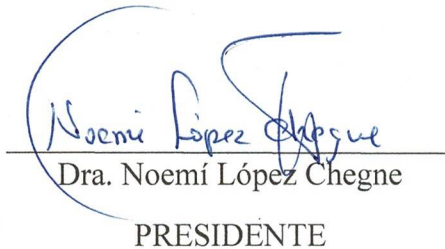 Noemi López Chegne
Dra. Noemí López Chegne
PRESIDENTE